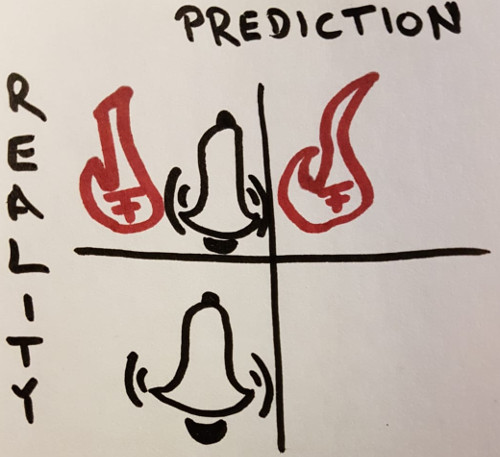 PREDICTION
REALITY
F F